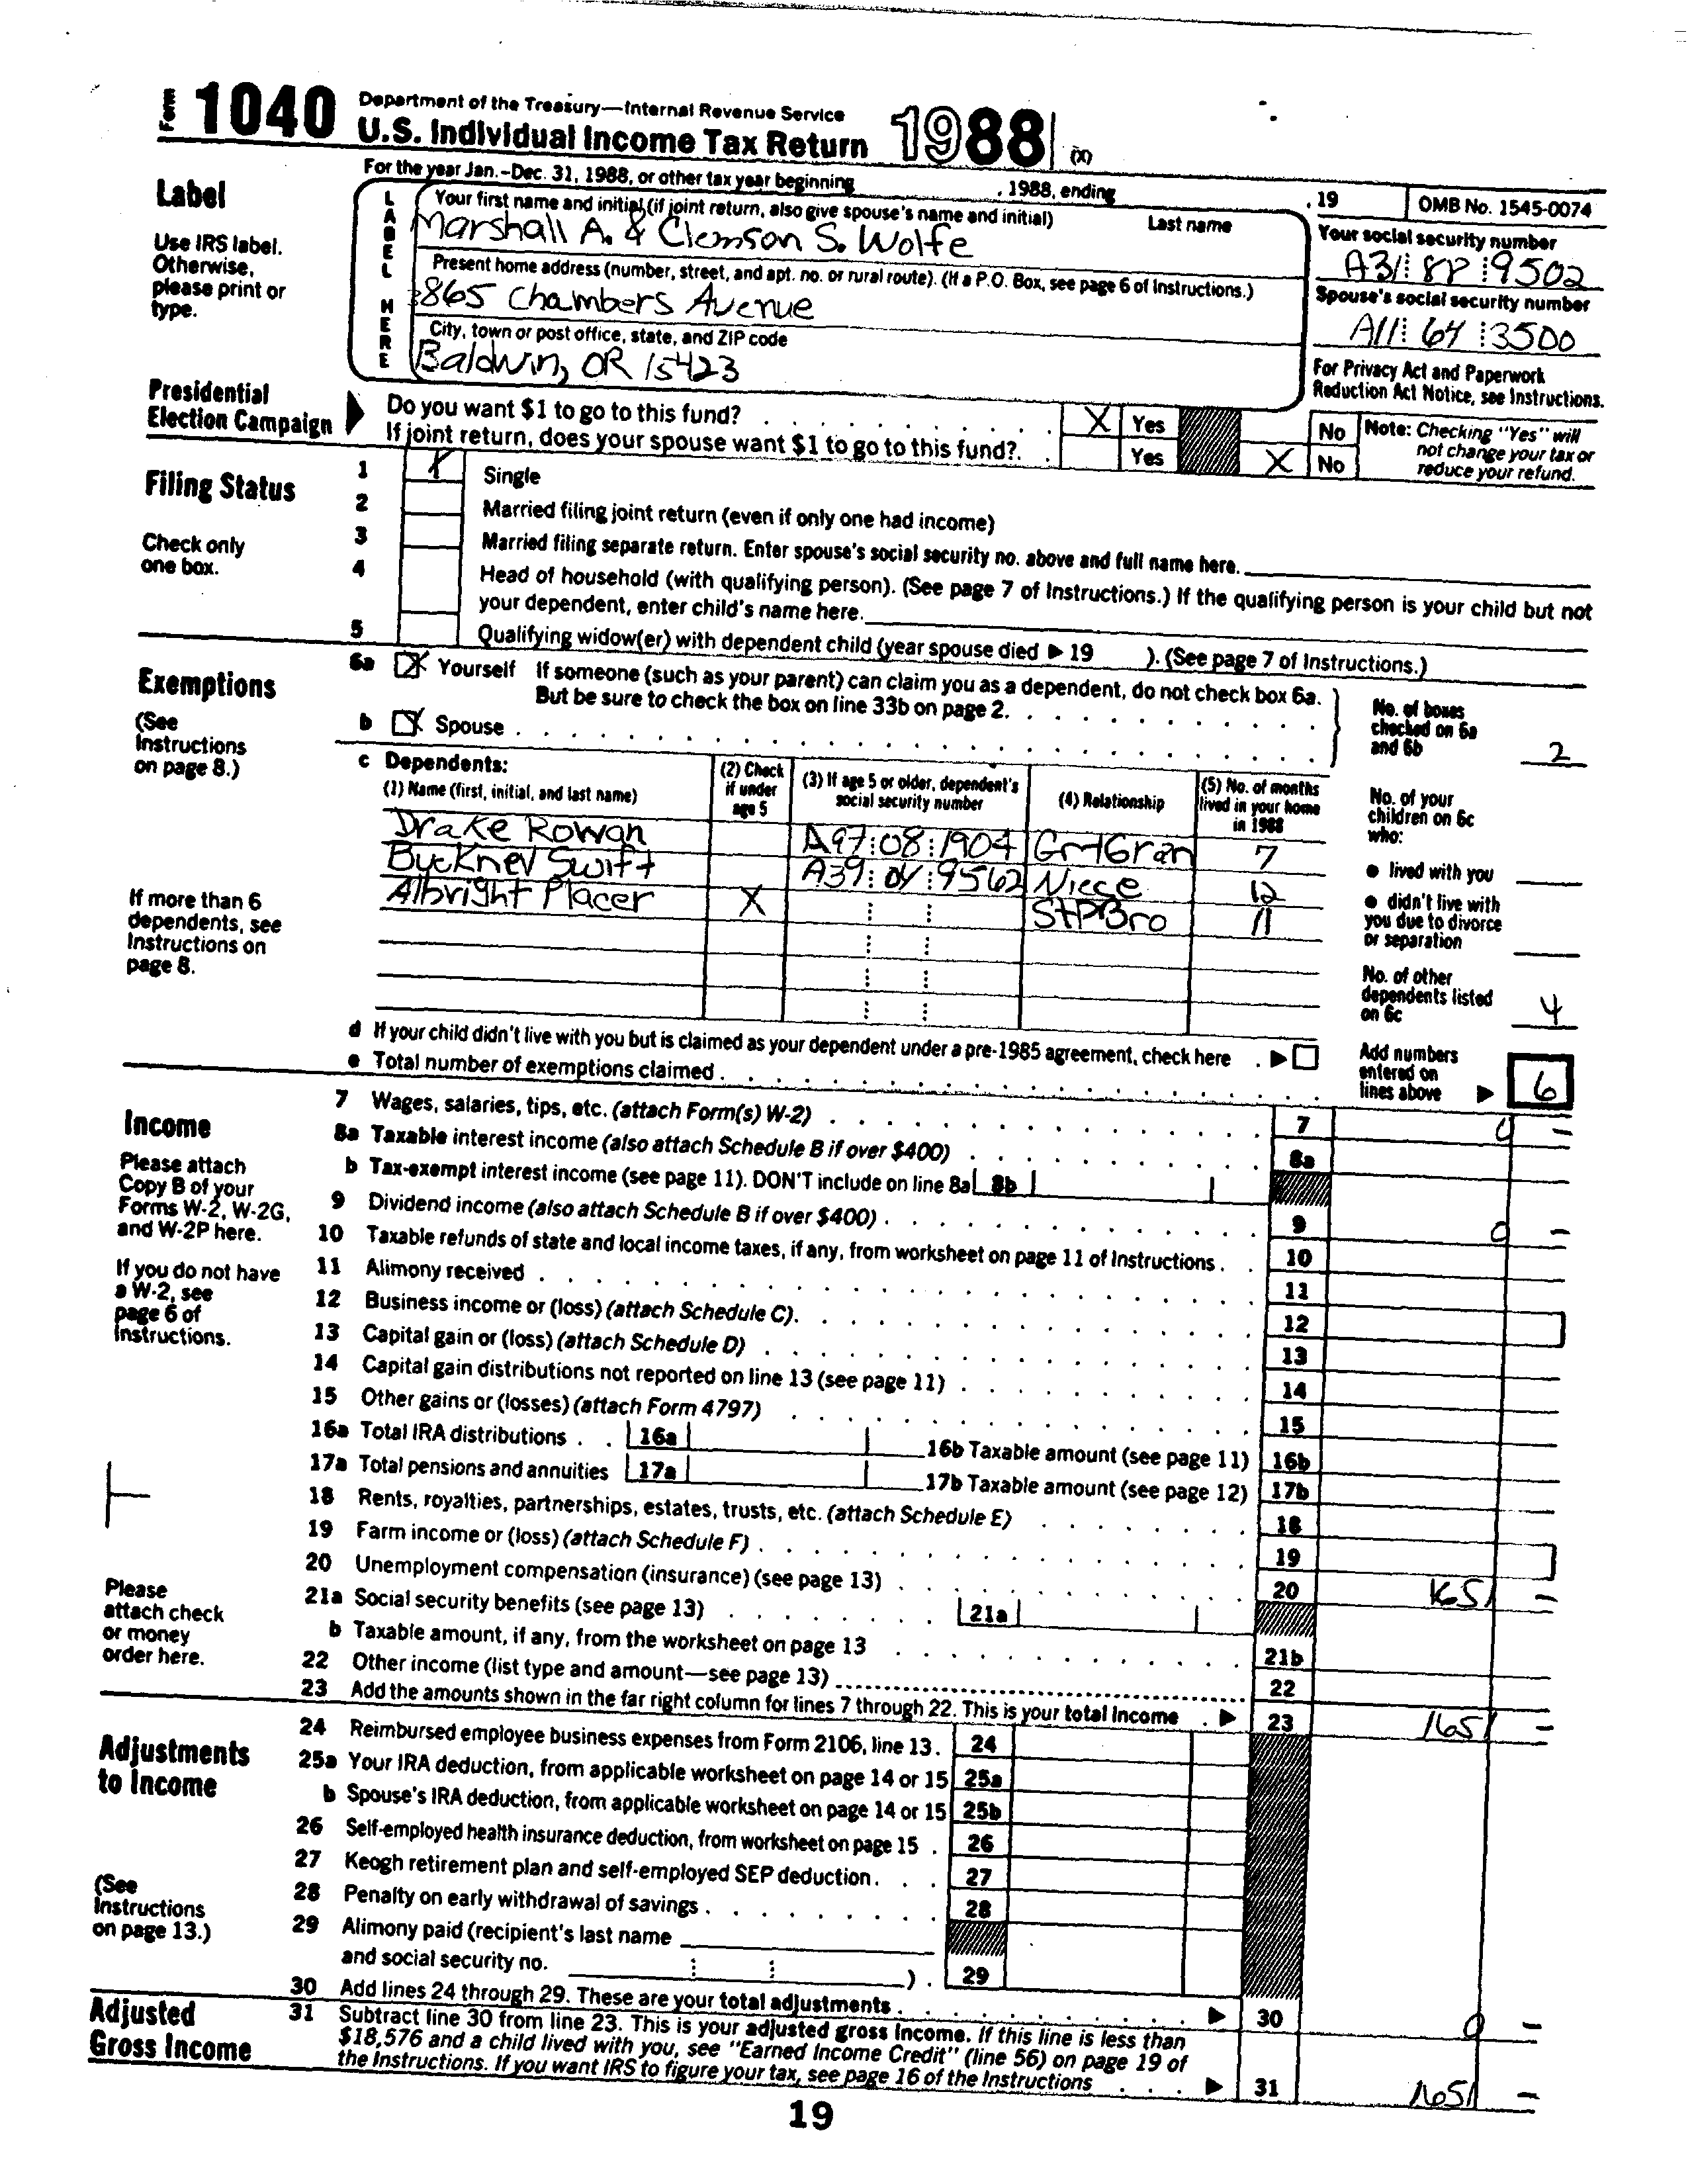 Form 1040 Department of the Treasury—Internal Revenue Service
U.S. Individual Income Tax Return 1988 (X)
For the year Jan.–Dec. 31, 1988, or other tax year beginning , 1988, ending , 19 OMB No. 1545-0074
Label
Use IRS label. Otherwise, please print or type.
LABEL HERE
Your first name and initial (if joint return, also give spouse's name and initial) Last name
Marshall A. & Clemson S. Wolfe
Your social security number
A31 88 9502
Present home address (number, street, and apt. no. or rural route). (If a P.O. Box, see page 6 of Instructions.)
3865 Chambers Avenue
Spouse's social security number
A11 64 3500
City, town or post office, state, and ZIP code
Baldwin, OR 15423
For Privacy Act and Paperwork Reduction Act Notice, see Instructions.
Presidential Election Campaign
Do you want $1 to go to this fund? X Yes No
If joint return, does your spouse want $1 to go to this fund? Yes X No
Note: Checking "Yes" will not change your tax or reduce your refund.
Filing Status
Check only one box.
1 X Single
2 Married filing joint return (even if only one had income)
3 Married filing separate return. Enter spouse's social security no. above and full name here.
4 Head of household (with qualifying person). (See page 7 of Instructions.) If the qualifying person is your child but not
your dependent, enter child's name here.
5 Qualifying widow(er) with dependent child (year spouse died ▶ 19 ). (See page 7 of Instructions.)
Exemptions
(See Instructions on page 8.)
6a X Yourself If someone (such as your parent) can claim you as a dependent, do not check box 6a.
But be sure to check the box on line 33b on page 2.
b X Spouse
No. of boxes checked on 6a and 6b 2
c Dependents:
(1) Name (first, initial, and last name) (2) Check if under age 5 (3) If age 5 or older, dependent's social security number (4) Relationship (5) No. of months lived in your home in 1988
Drake Rowan A97 08 1904 GrtGran 7
Buckner Swift A39 04 9562 Niece 12
Albright Placer X StPBro 11
If more than 6 dependents, see Instructions on page 8.
No. of your children on 6c who:
● lived with you
● didn't live with you due to divorce or separation
No. of other dependents listed on 6c 4
d If your child didn't live with you but is claimed as your dependent under a pre-1985 agreement, check here ▶
e Total number of exemptions claimed
Add numbers entered on lines above ▶ 6
Income
Please attach Copy B of your Forms W-2, W-2G, and W-2P here.
If you do not have a W-2, see page 6 of Instructions.
Please attach check or money order here.
7 Wages, salaries, tips, etc. (attach Form(s) W-2) 7 0 –
8a Taxable interest income (also attach Schedule B if over $400) 8a
b Tax-exempt interest income (see page 11). DON'T include on line 8a 8b
9 Dividend income (also attach Schedule B if over $400) 9 0 –
10 Taxable refunds of state and local income taxes, if any, from worksheet on page 11 of Instructions 10
11 Alimony received 11
12 Business income or (loss) (attach Schedule C) 12
13 Capital gain or (loss) (attach Schedule D) 13
14 Capital gain distributions not reported on line 13 (see page 11) 14
15 Other gains or (losses) (attach Form 4797) 15
16a Total IRA distributions 16a 16b Taxable amount (see page 11) 16b
17a Total pensions and annuities 17a 17b Taxable amount (see page 12) 17b
18 Rents, royalties, partnerships, estates, trusts, etc. (attach Schedule E) 18
19 Farm income or (loss) (attach Schedule F) 19
20 Unemployment compensation (insurance) (see page 13) 20 1651 –
21a Social security benefits (see page 13) 21a
b Taxable amount, if any, from the worksheet on page 13 21b
22 Other income (list type and amount—see page 13) 22
23 Add the amounts shown in the far right column for lines 7 through 22. This is your total income ▶ 23 1651 –
Adjustments to Income
(See Instructions on page 13.)
24 Reimbursed employee business expenses from Form 2106, line 13. 24
25a Your IRA deduction, from applicable worksheet on page 14 or 15 25a
b Spouse's IRA deduction, from applicable worksheet on page 14 or 15 25b
26 Self-employed health insurance deduction, from worksheet on page 15 26
27 Keogh retirement plan and self-employed SEP deduction 27
28 Penalty on early withdrawal of savings 28
29 Alimony paid (recipient's last name
and social security no. ) 29
30 Add lines 24 through 29. These are your total adjustments ▶ 30 0 –
Adjusted Gross Income
31 Subtract line 30 from line 23. This is your adjusted gross income. If this line is less than
$18,576 and a child lived with you, see "Earned Income Credit" (line 56) on page 19 of
the Instructions. If you want IRS to figure your tax, see page 16 of the Instructions ▶ 31 1651 –
19